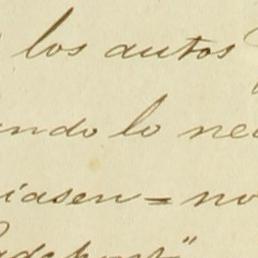 los autos
ndo lo ne
iasen = no